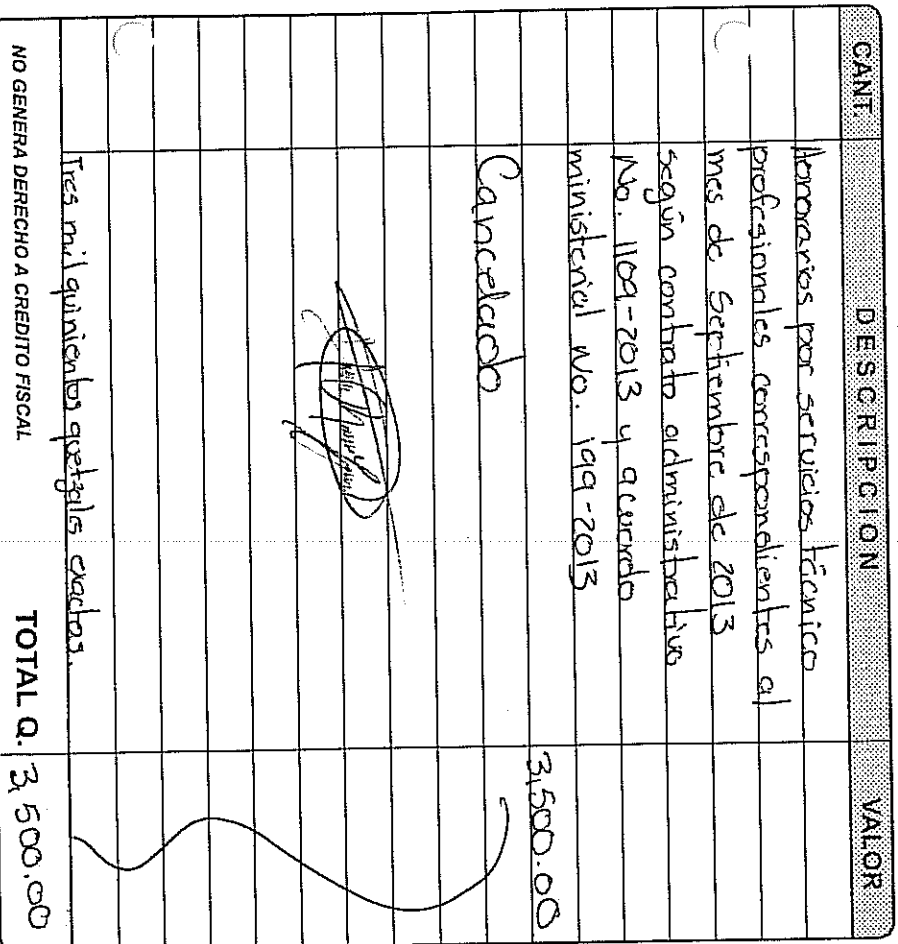 CANT. DESCRIPCION VALOR
Honorarios por servicios técnico
profesionales correspondientes al
mes de Septiembre de 2013
según contrato administrativo
No. 1109-2013 y acuerdo
ministerial No. 199-2013
3,500.00
Cancelado
Tres mil quinientos quetzales exactos.
NO GENERA DERECHO A CREDITO FISCAL TOTAL Q. 3,500.00